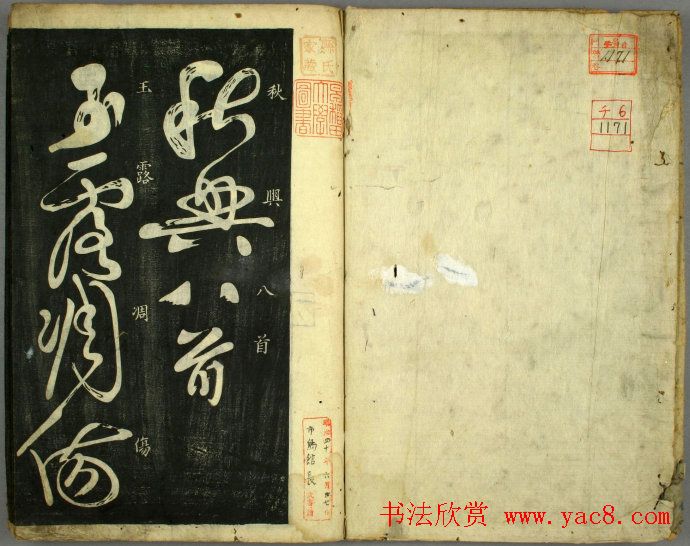 秋興八首
秋興八首
玉露凋傷
玉露凋傷
チ 6
1171
1171
市島舘長
书法欣赏 www.yac8.com